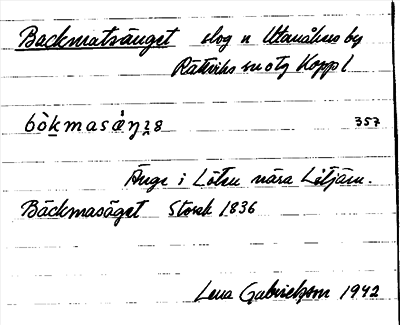 Backmatsänget skog n Utanåkers by
Rättviks sn otg Kopp l
bòkmasǻŋ 357
Änge i Löten nära Letjärn.
Bäckmasäget Storsk 1836
Lena Gabrielsson 1942